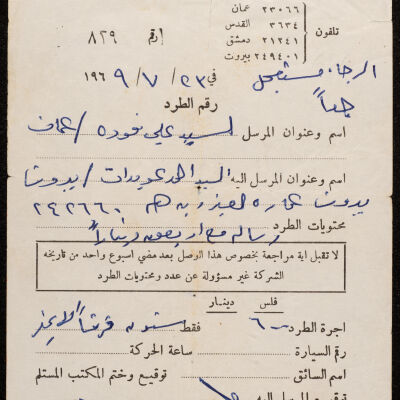 ٢٣٠٦٦ عمان
٣٦٣٤ القدس
٢١٢٤١ دمشق
٢٤٩٤٠١ بيروت
تلفون
رقم ٨٢٩
الرجاء مستعجل
جداً
في ٢٣/ ٧/ ١٩٦٩
رقم الطرد
اسم وعنوان المرسل السيد علي فوده / عمان
اسم وعنوان المرسل اليه السيد احمد عويدات / بيروت
بيروت عمارة العيزرية ٢٤٢٦٦٠
محتويات الطرد رسالة مع اربعون ديناراً
لا تقبل اية مراجعة بخصوص هذا الوصل بعد مضي اسبوع واحد من تاريخه
الشركة غير مسؤولة عن عدد ومحتويات الطرد
فلس دينـار
اجرة الطرد ٦٠ فقط ستون لا غير
رقم السيارة ساعة الحركة
اسم السائق توقيع وختم المكتب المستلم
توقيع المرسل اليه